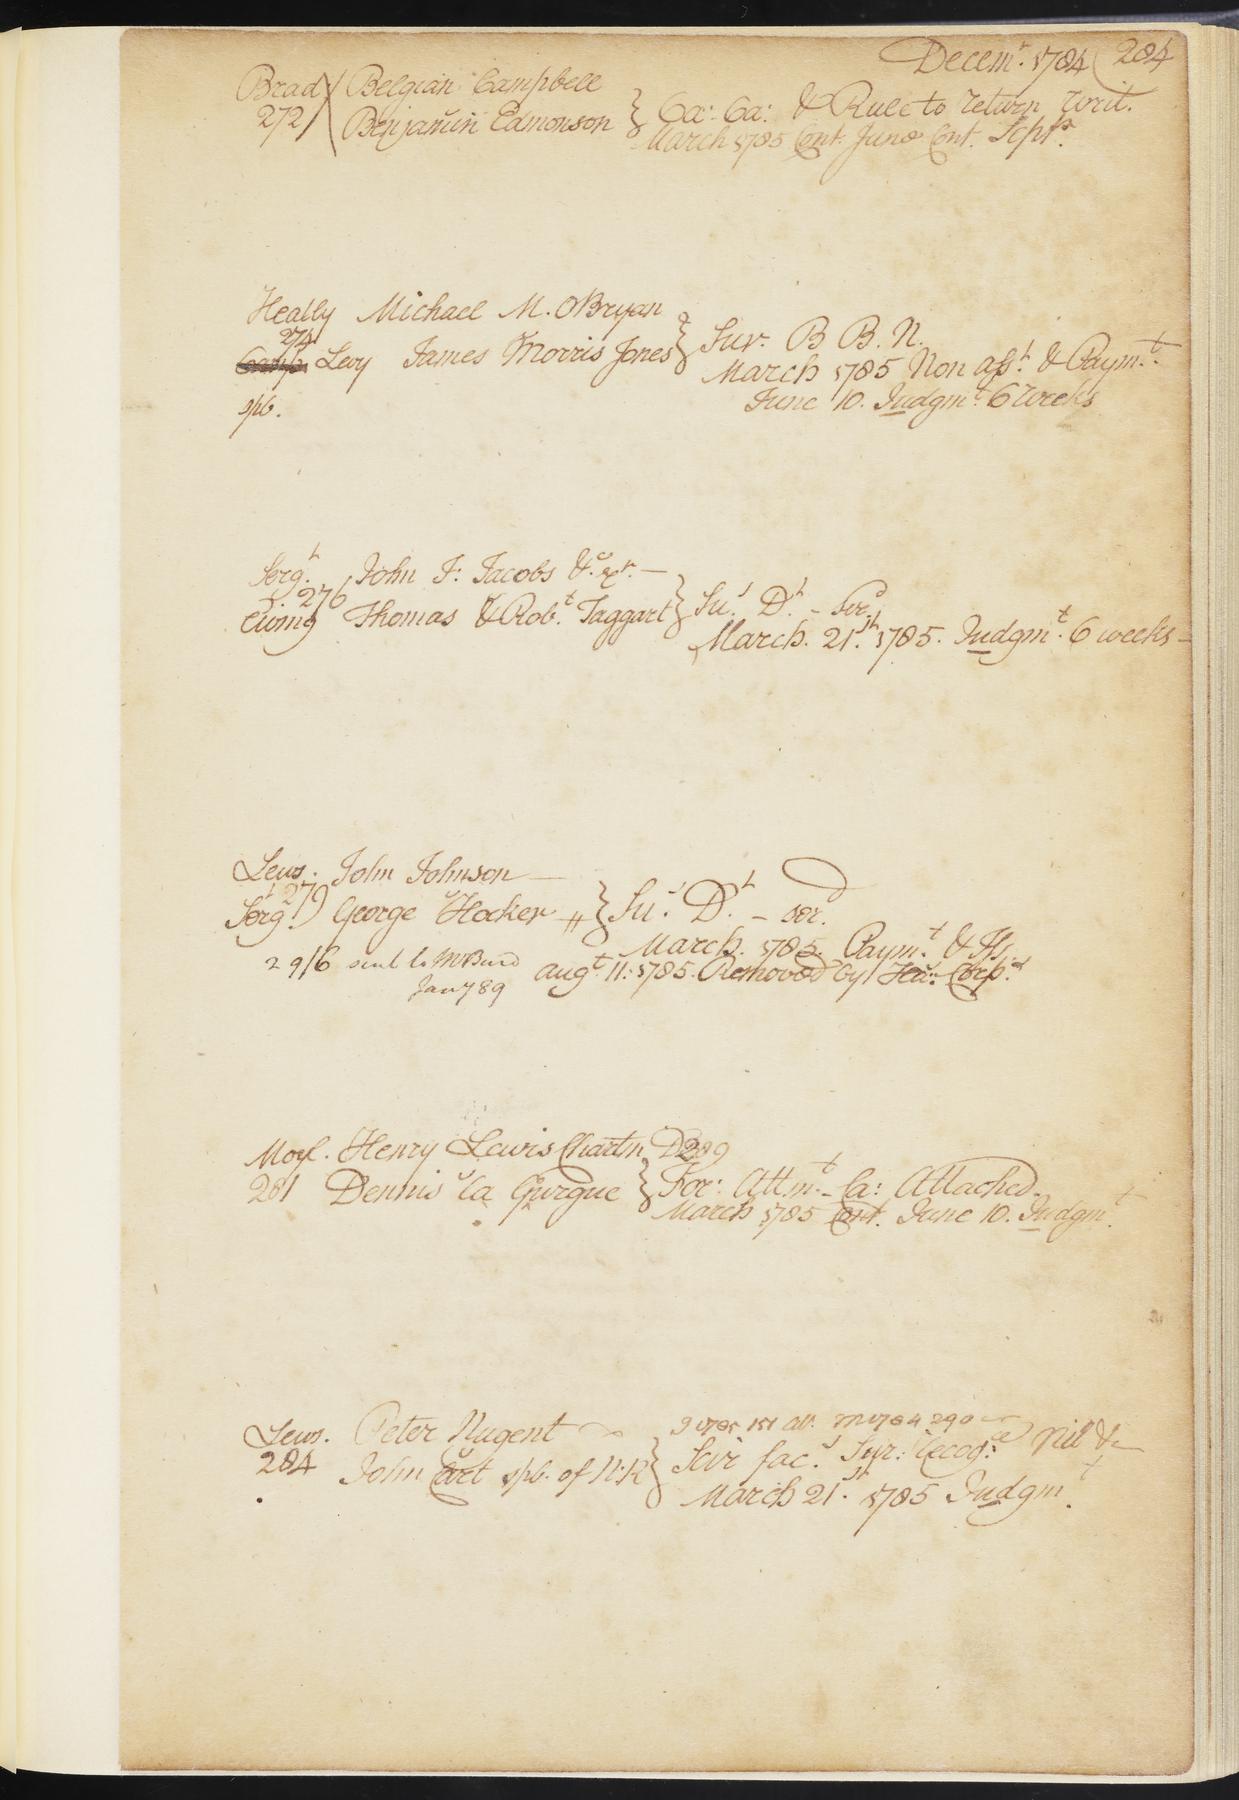 Decem.r 1784 (284
Brad Belgian Campbell
272 Benjamin Edmonson } Ca: Sa: & Rule to return writ.
March 1785 Cont. June Cont. Sept.r
Heatly Michael M. OBryan
274
Levy James Morris Jones } Sur. B B. N.
March 1785 Non ass.t & Paym.t
spb. June 10. Judgm.t 6 weeks
Serg.t John F. Jacobs &c. exr. —
276
Ewing Thomas & Rob.t Taggart } Su.s D.t - ser.
March. 21.st 1785. Judgm.t 6 weeks -
Lews. John Johnson —
279
Serg.t George Hocker } Su.s D.t - ser.
March. 1785. Paym.t & Iss.
2 9/6 sent to McBurd aug.t 11. 1785. Removed by Ha: Corp.s
Jany 89
Moyl. Henry Lewis Chartn D289
281 Dennis la Gurgue } For: Attm.t - Ca: Attached.
March 1785 Cont. June 10. Judgm.t
Lews. Peter Nugent
284 John Cart spb. of N:R } Scir fac.s Sur: Recog.ce Nil &
March 21.st 1785 Judgm.t